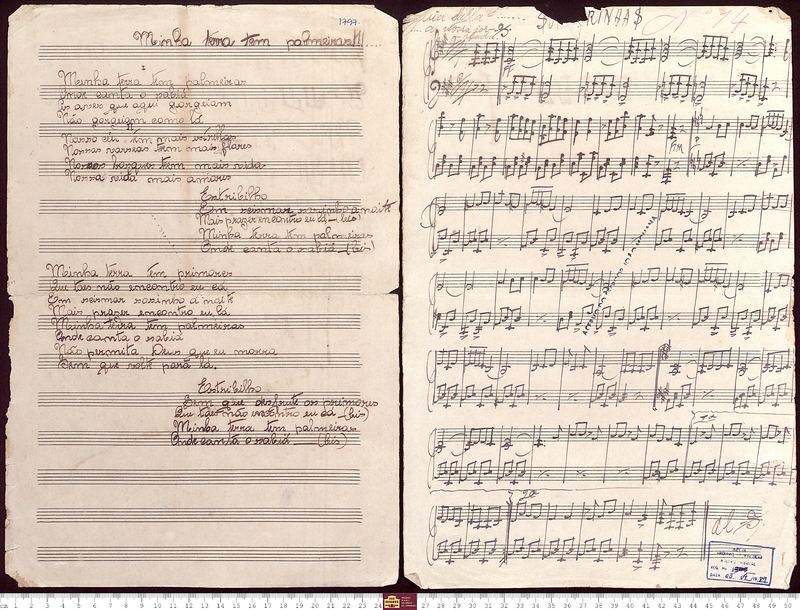 1797
Minha terra tem palmeiras!!!....
Minha terra tem palmeiras
Onde canta o sabiá
As aves que aqui gorgeiam
Não gorgeiam como lá
Nosso céu tem mais estrellas
Nossas varseas tem mais flores
Nossos bosques tem mais vida
Nossa vida mais amores
Estribilho
Em seismar sosinho a noite
Mais prazer encontro eu lá (bis)
Minha terra tem palmeiras
Onde canta o sabiá (bis)
Minha terra tem primores
Que taes não encontro eu cá
Em seismar sosinho á noite
Mais prazer encontro eu lá
Minha terra tem palmeiras
Onde canta o sabiá
Não permita Deus que eu morra
Sem que volte para lá.
Estribilho
Sem que desfrute os primores
Que taes não encontro eu cá (bis)
Minha terra tem palmeiras
Onde canta o sabiá (bis)
Nº 14
1ª
2ª
al